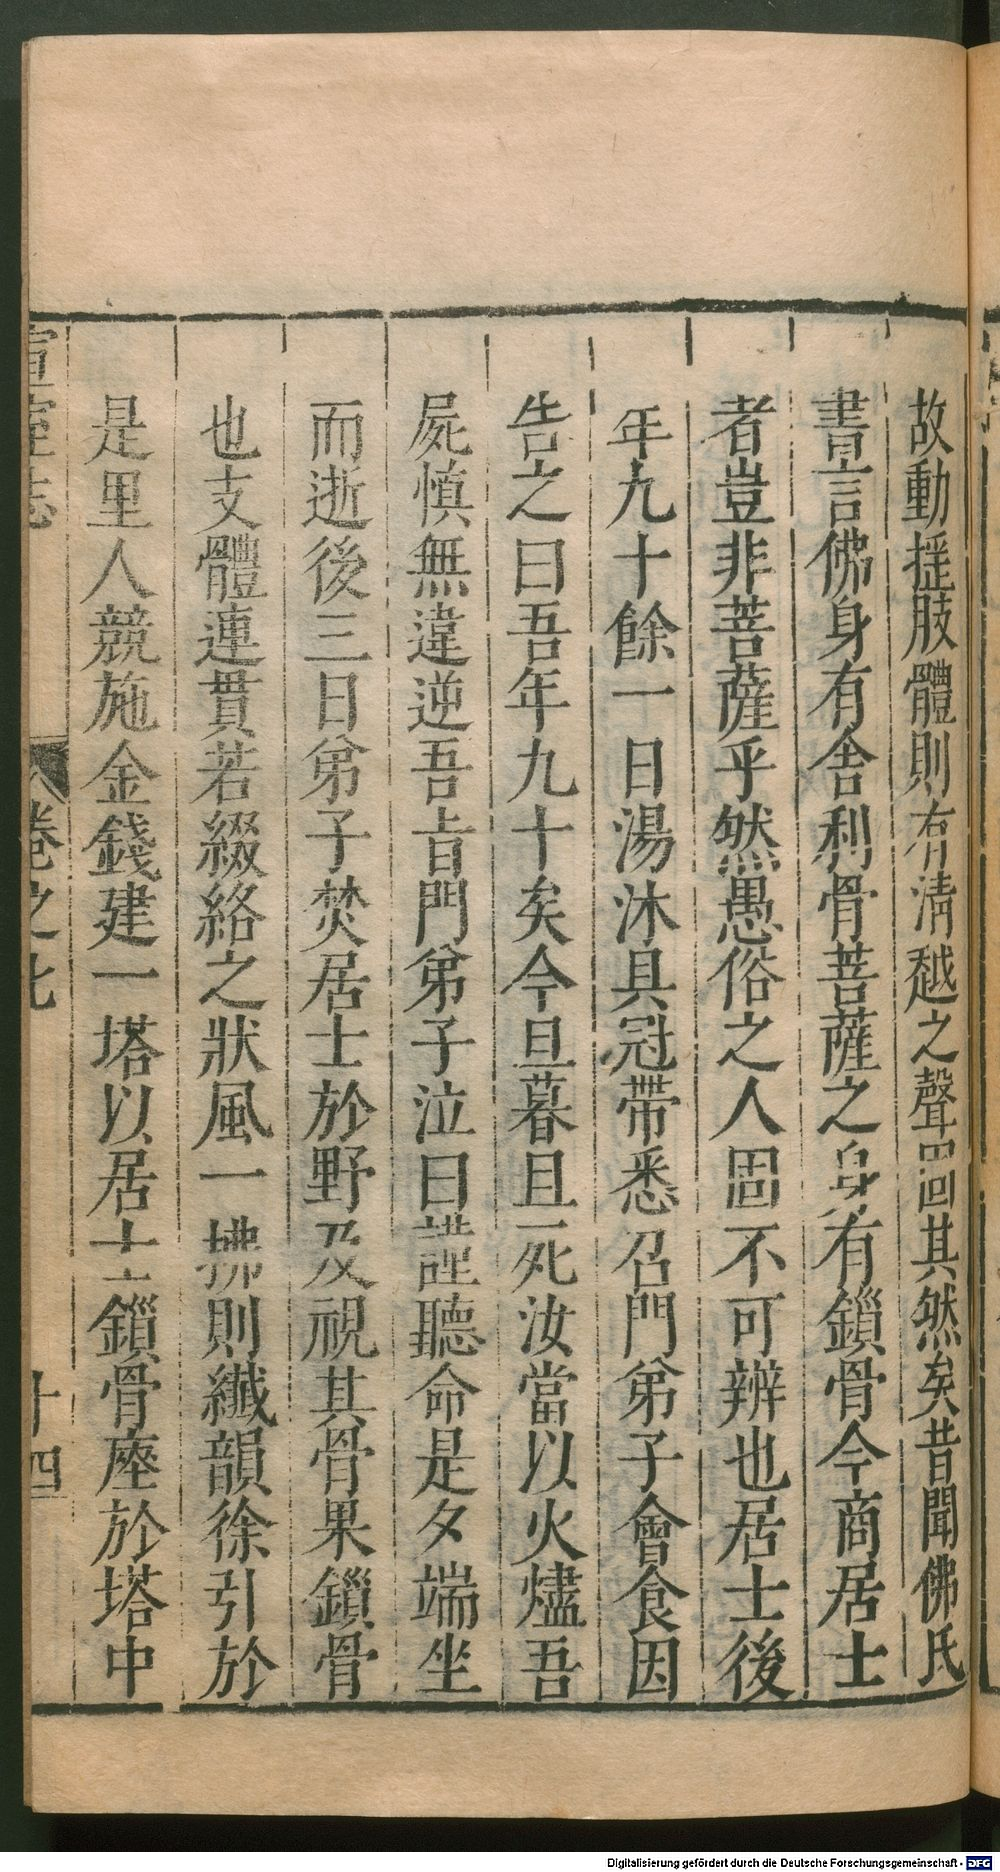 故動搖肢體則有清越之聲固其然矣昔聞佛氏
書言佛身有舍利骨菩薩之身有鎻骨今商居士
者豈非菩薩乎然愚俗之人固不可辨也居士後
年九十餘一日湯沐具冠帶悉召門弟子會食因
告之曰吾年九十矣今旦暮且死汝當以火燼吾
屍慎無違逆吾㫖門弟子泣曰謹聽命是夕端坐
而逝後三日弟子焚居士於野及視其骨果鎻骨
也支體連貫若綴絡之狀風一拂則纖韻徐引於
是里人競施金錢建一塔以居士鎻骨座於塔中
宣室志
卷之七
十四
Digitalisierung gefördert durch die Deutsche Forschungsgemeinschaft - DFG